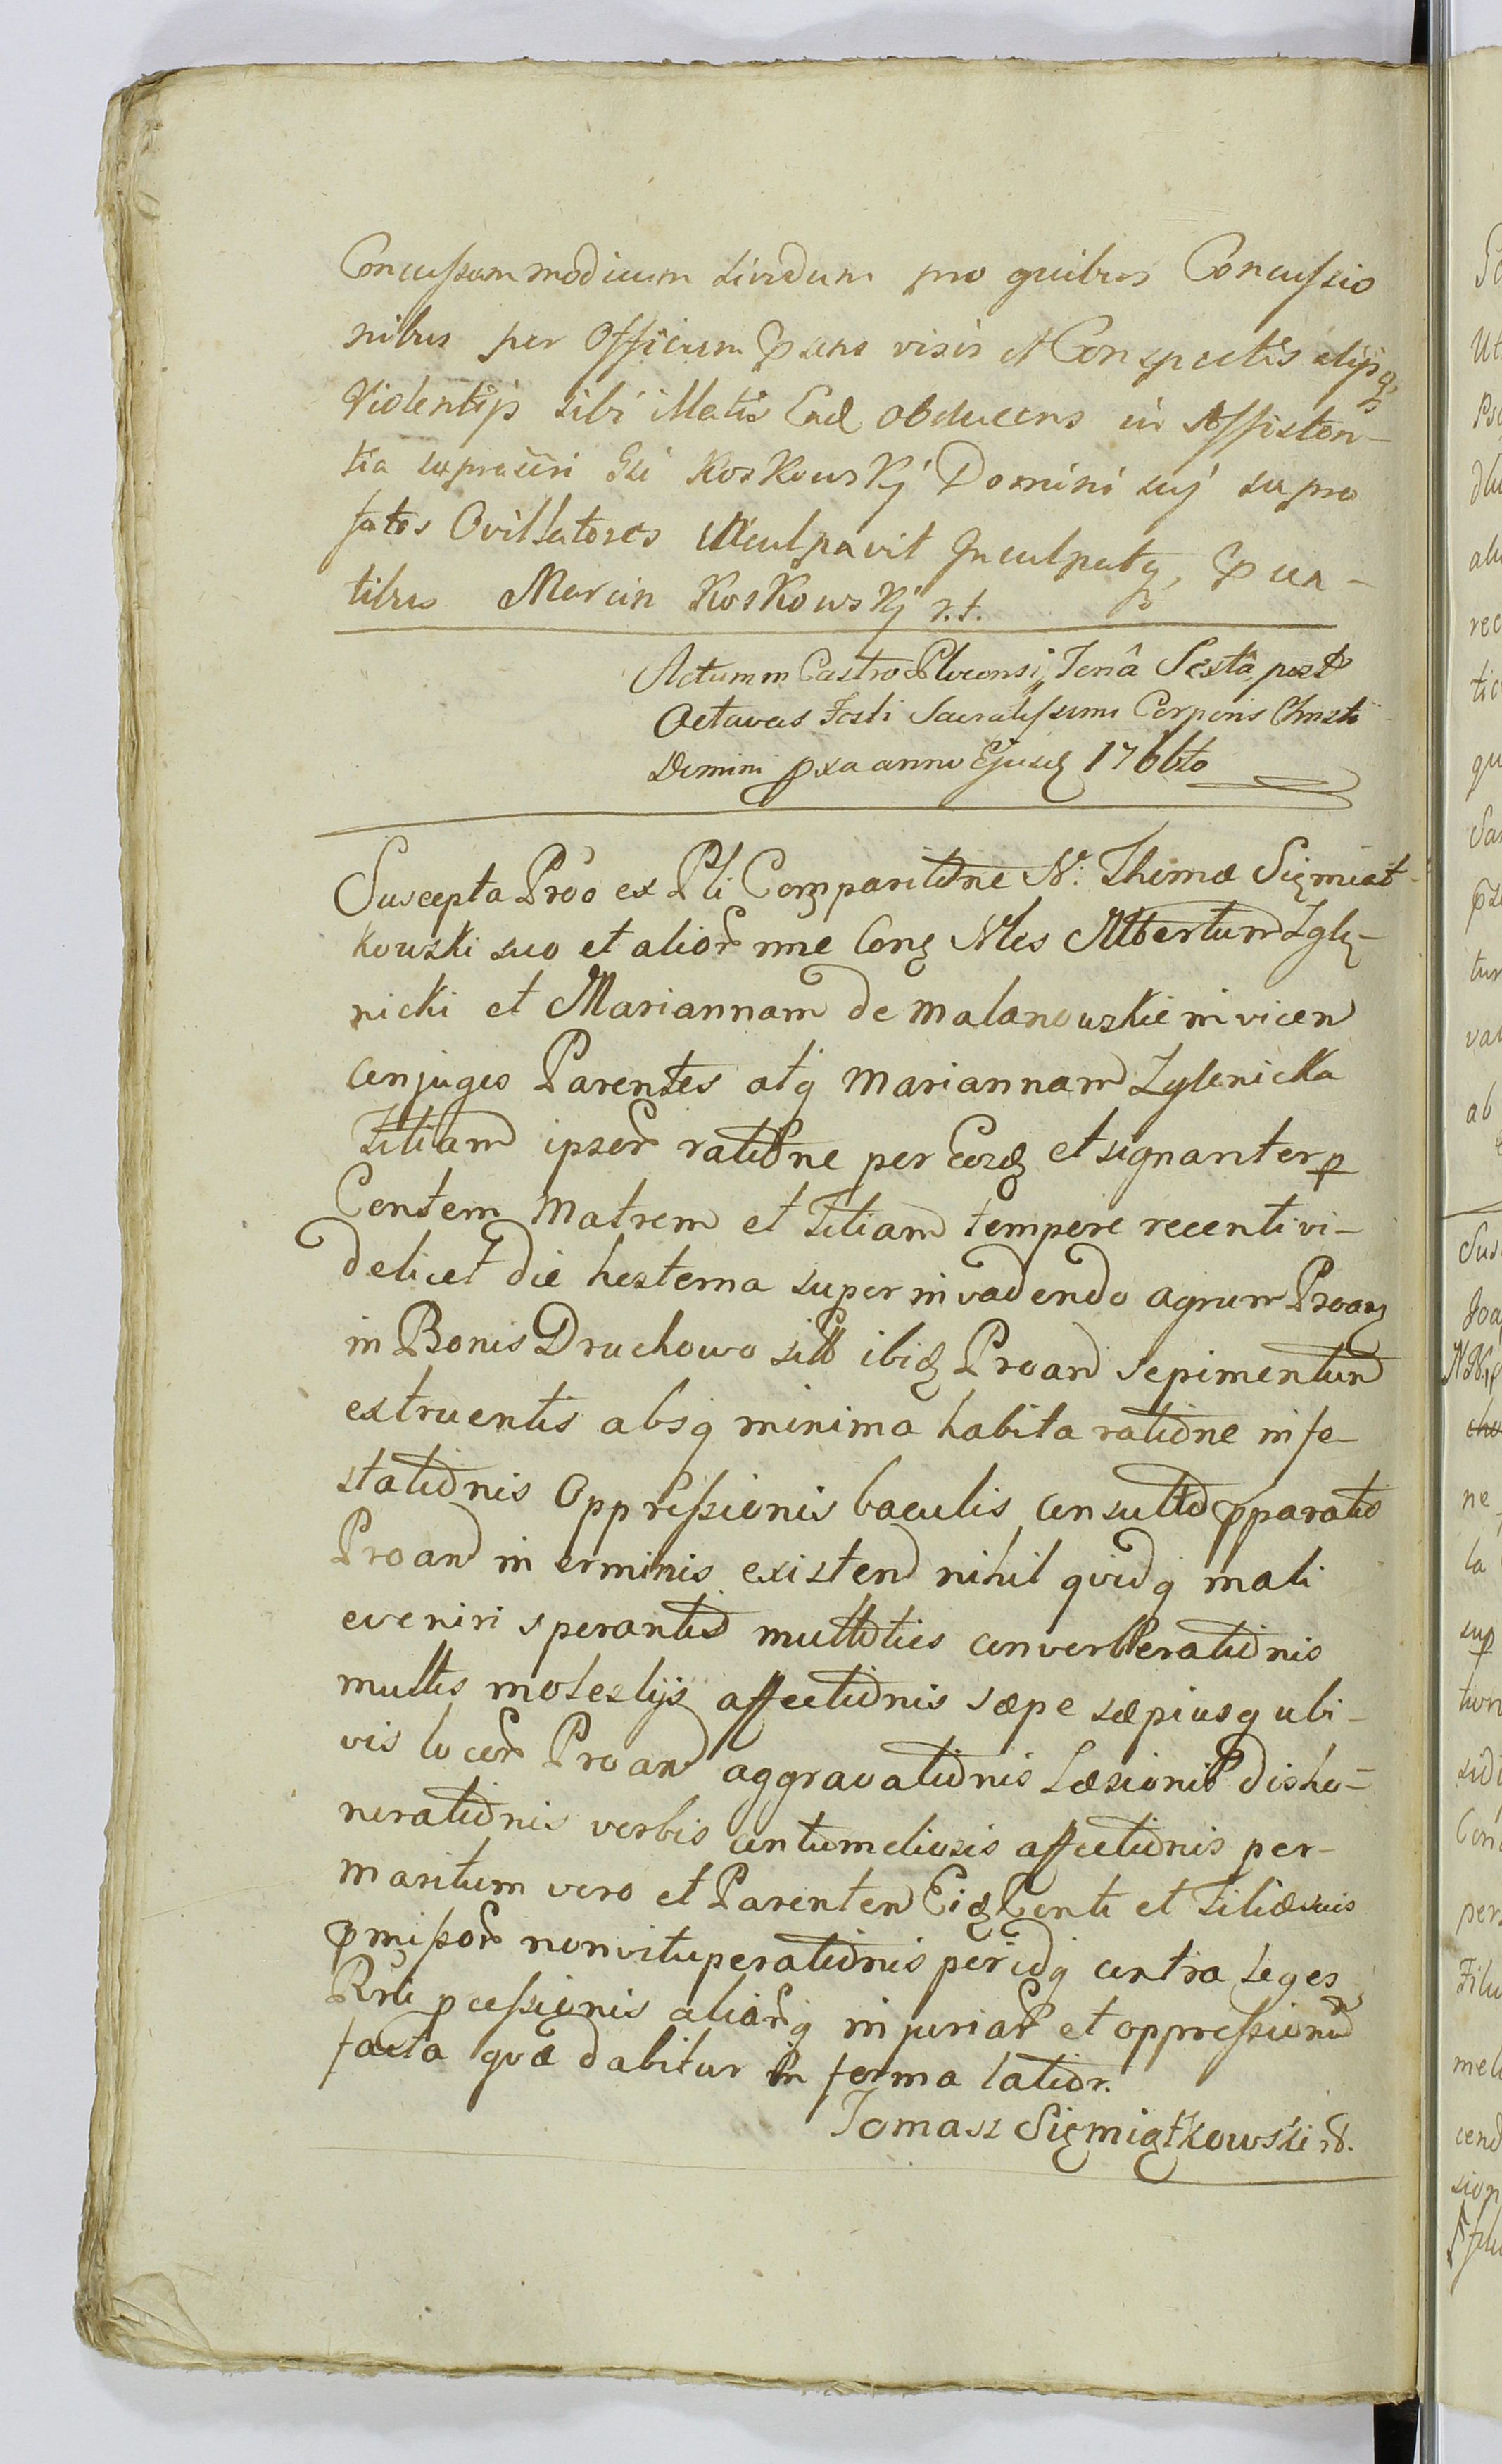 Concussam modicum lividum pro quibus Concussio
nibus per Officium Psens visis et Conspectis alijsq
Violentijs sibi illatis Ead obducens in Assisten-
tia supra Gsi Koskowskj Domini suj supra
fatos Ovillatores inculpavit Inculpatq, Psen-
tibus Marcin Koskowskj r.t.
Actum in Castro Plocensi, Feria Sexta post
Octavas Festi Sacratissimi Corporis Christi
Domini pxa anno Ejusd 1766to
Suscepta Prõo ex Pti Comparitione N: Thoma Sięmiąt-
kowski suo et alior nne Conq Nles Albertum Zgle-
nicki et Mariannam de Malanowskie invicem
conjuges Parentes atq Mariannam Zglenicka
Filiam ipsor ratione per Eosd et signanter p
Centem Matrem et Filiam tempore recenti vi-
delicet die hesterna super invadendo agrum Proan
in Bonis Druchowo sitt ibid Proand sepimentum
extruentis absq minima habita ratione infe-
stationis Oppressionis baculis consulto pparatis
Proand in erminis existend nihil quidq mali
eveniri sperantis multoties converberationis
multis molestijs affectionis sæpe sæpiusq ubi-
vis locor Proand aggravationis Læsionis disho-
norationis verbis contumeliosis affectionis per-
maritum vero et Parentem Eid Centi et Filiæ suis
pmissor non vituperationis per idq contra Leges
Rni pcessionis aliarq injuriar et oppressionum
facta quæ dabitur in forma latior.
Tomasz Sięmiątkowski